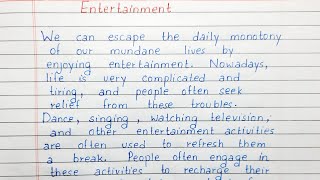 Entertainment
We can escape the daily monotony
of our mundane lives by
enjoying entertainment. Nowadays,
life is very complicated and
tiring, and people often seek
relief from these troubles.
Dance, singing, watching television,
and other entertainment activities
are often used to refresh them
a break. People often engage in
these activities to recharge their